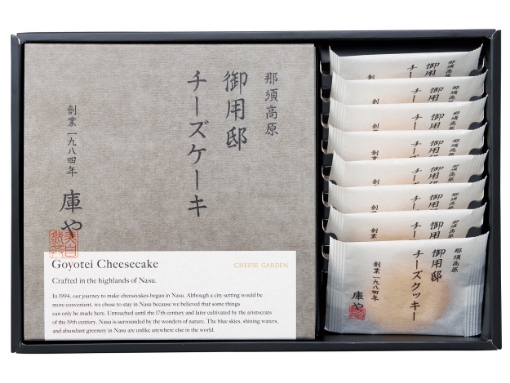 那須高原
御用邸
チーズケーキ
創業一九八四年
庫や
Goyotei Cheesecake
CHEESE GARDEN
Crafted in the highlands of Nasu.
In 1994, our journey to make cheesecakes began in Nasu. Although a city setting would be
more convenient, we chose to stay in Nasu because we believed that some things
can only be made here. Untouched until the 17th century and later cultivated by the aristocrats
of the 19th century, Nasu is surrounded by the wonders of nature. The blue skies, shining waters,
and abundant greenery in Nasu are unlike anywhere else in the world.
那須高原
御用
チー
創
那須高原
御用邸
チーズクッキー
創業一九八四年
庫や